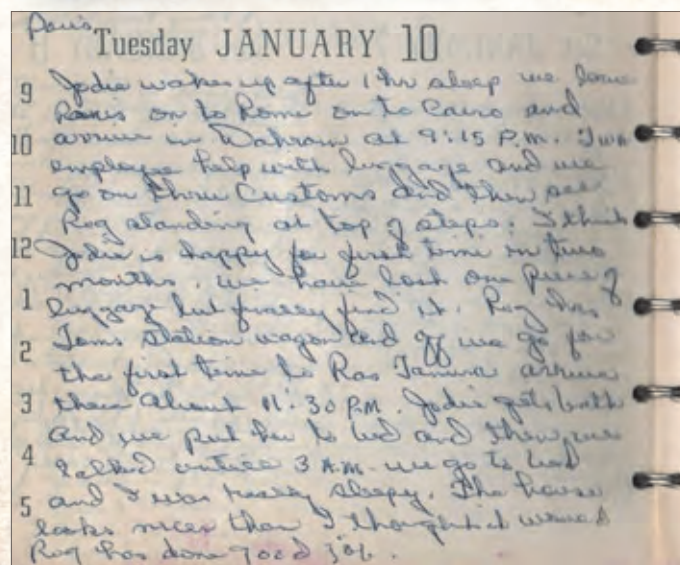 Paris
Tuesday JANUARY 10
9 Jodie wakes up after 1 hr sleep we leave
Paris on to Rome on to Cairo and
10 arrive in Dahran at 9:15 P.M. TWA
employee help with luggage and we
11 go on thru Customs and then see
Rog standing at top of steps. I think
12 Jodie is happy for first time in two
months. We have lost one piece of
1 luggage but finally find it. Rog has
2 Toms station wagon and off we go for
the first time to Ras Tanura arrive
3 there about 11:30 P.M. Jodie gets bath
and we put her to bed and then we
4 talked until 3 A.M. we go to bed
and I was really sleepy. The house
5 looks nicer than I thought it would
Rog has done good job.